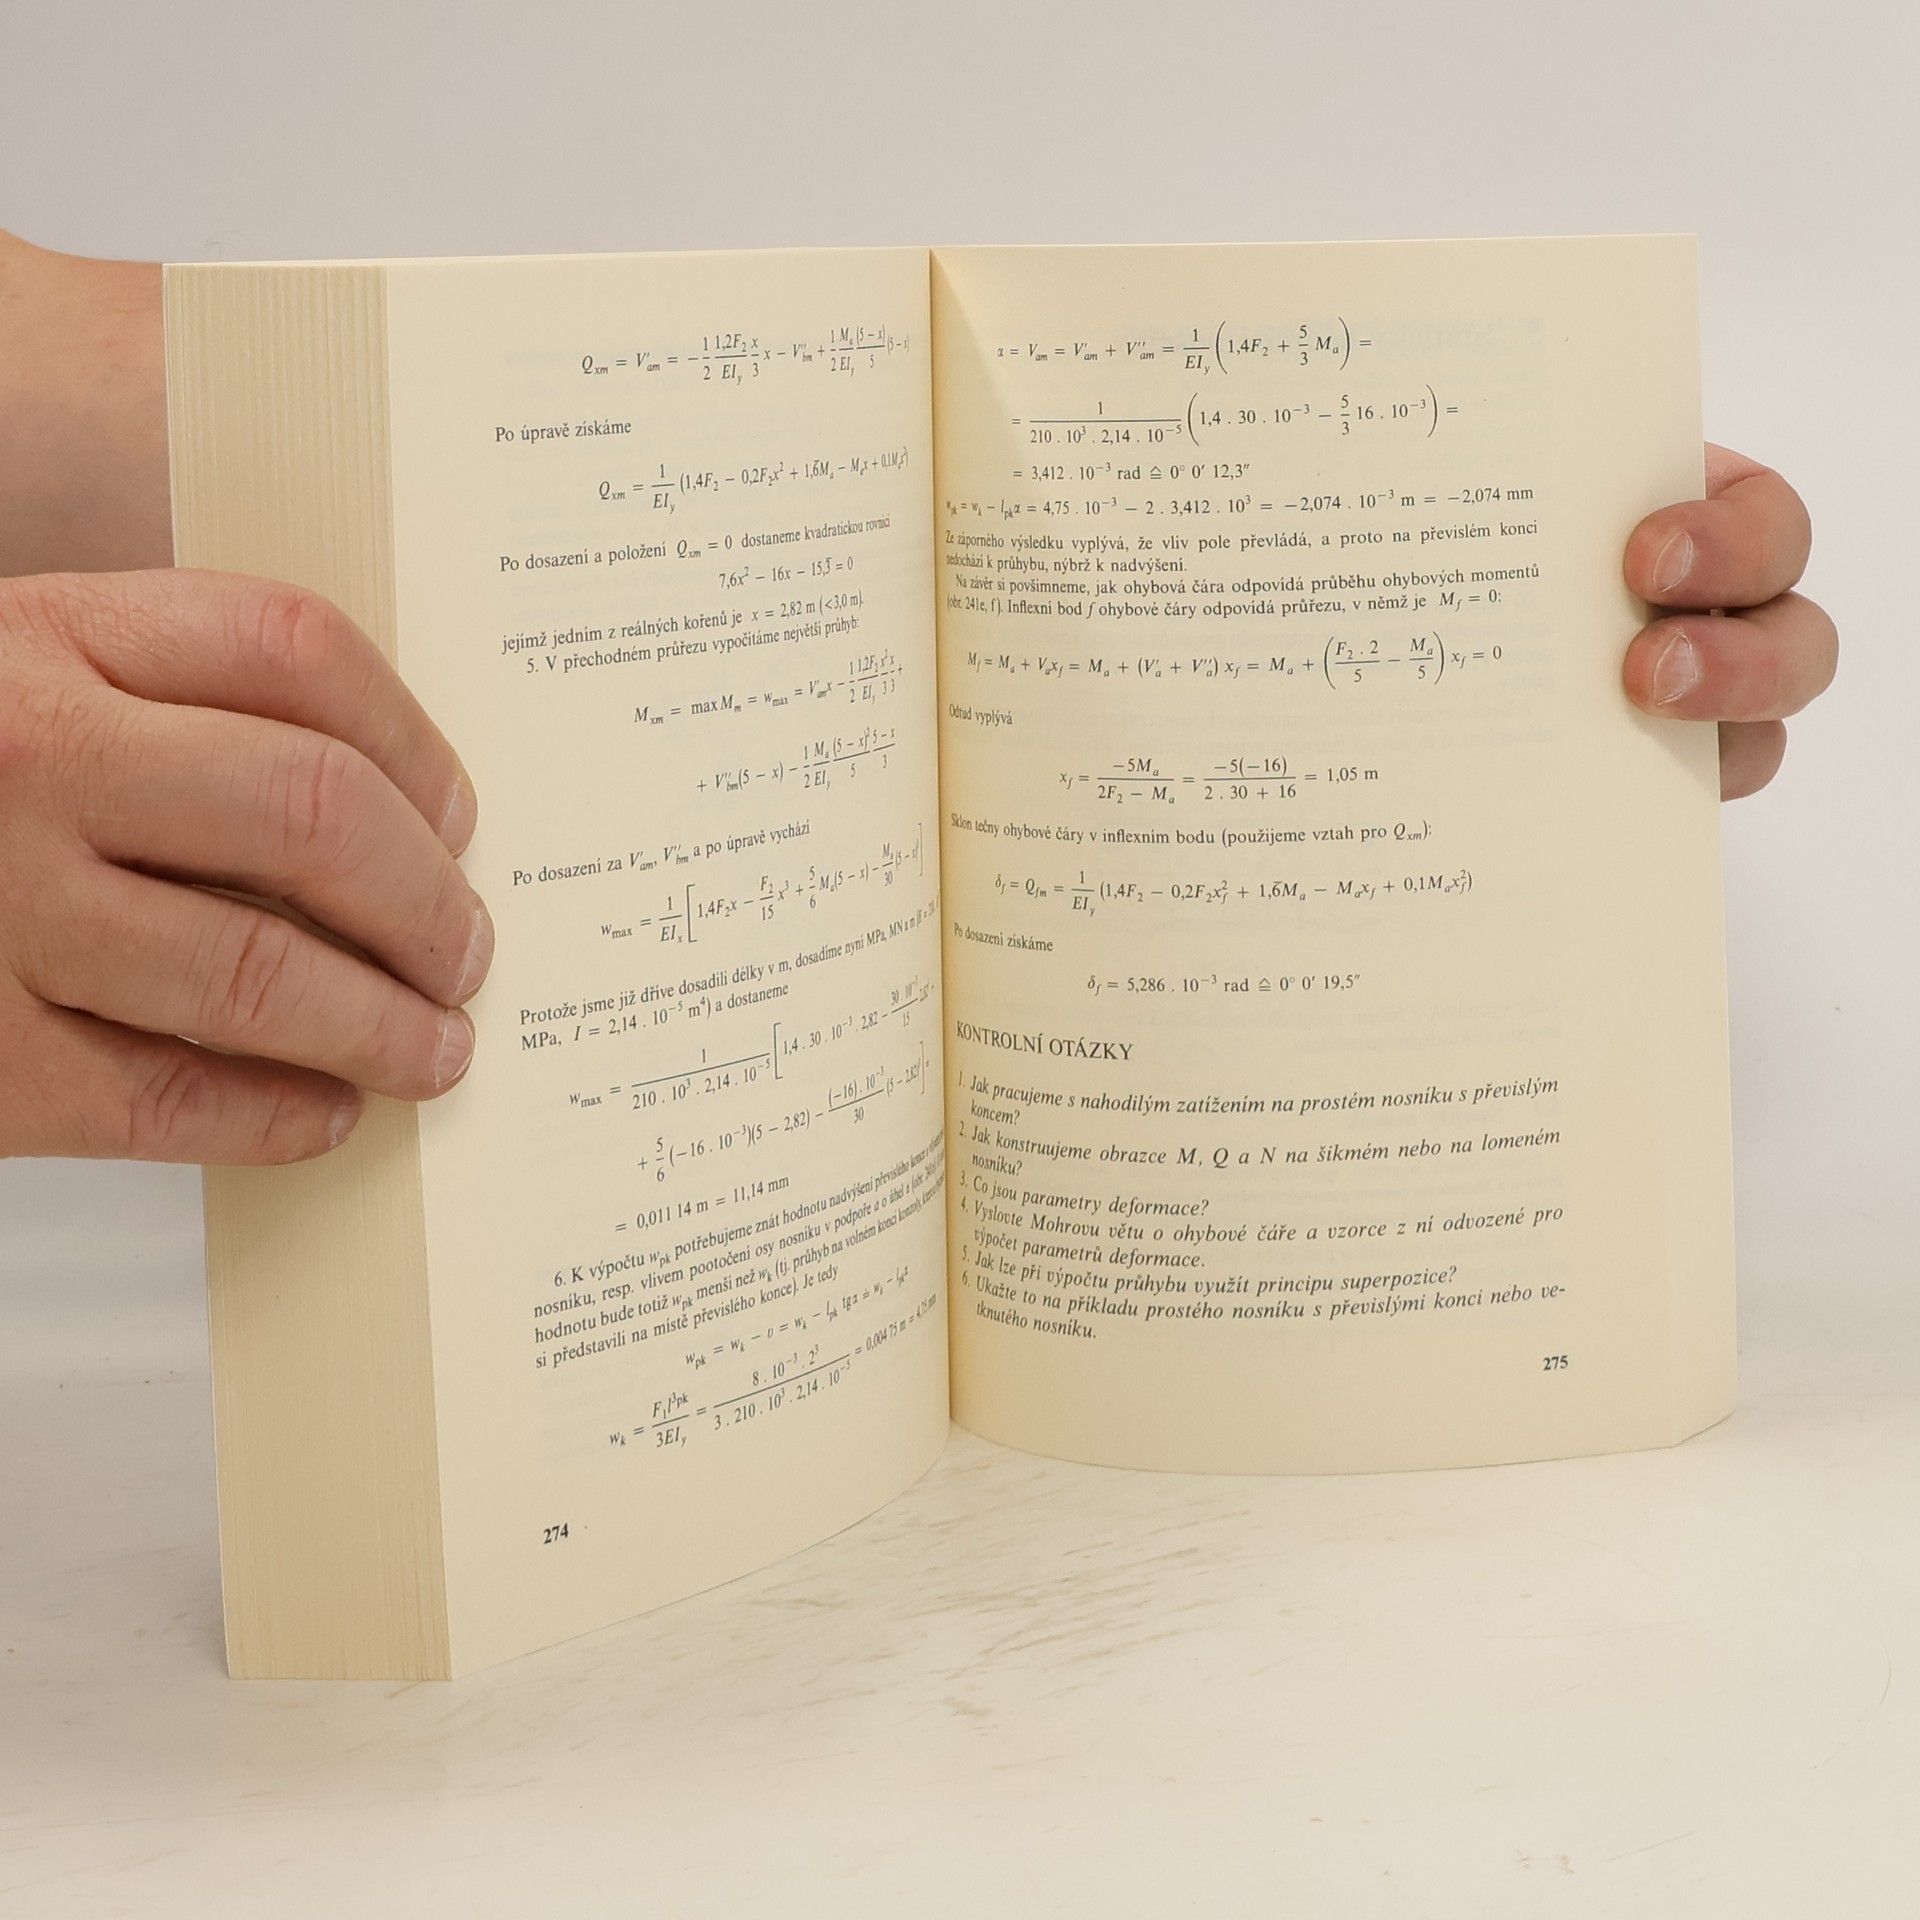 Q_xm = V'_am = − 1/2 1,2F_2/EI_y x/3 x − V''_bm + 1/2 M_a/EI_y (5 − x)/5 (5 − x)
Po úpravě získáme
Q_xm = 1/EI_y (1,4F_2 − 0,2F_2x² + 1,6̄M_a − M_ax + 0,1M_ax²)
Po dosazení a položení Q_xm = 0 dostaneme kvadratickou rovnici
7,6x² − 16x − 15,3̄ = 0
jejímž jedním z reálných kořenů je x = 2,82 m (<3,0 m).
5. V přechodném průřezu vypočítáme největší průhyb:
M_xm = max M_m = w_max = V'_am x − 1/2 1,2F_2/EI_y x²/3 x/3 +
+ V''_bm(5 − x) − 1/2 M_a/EI_y (5 − x)²/5 5 − x/3
Po dosazení za V'_am, V''_bm a po úpravě vychází
w_max = 1/EI_x [1,4F_2x − F_2/15 x³ + 5/6 M_a(5 − x) − M_a/30 (5 − x)³]
Protože jsme již dříve dosadili délky v m, dosadíme nyní MPa, MN a m (E =
MPa, I = 2,14 . 10⁻⁵ m⁴) a dostaneme
w_max = 1/210 . 10³ . 2,14 . 10⁻⁵ [1,4 . 30 . 10⁻³ . 2,82 − 30 . 10⁻³/15 2,82³ +
+ 5/6 (−16 . 10⁻³)(5 − 2,82) − (−16) . 10⁻³/30 (5 − 2,82)³] =
= 0,011 14 m = 11,14 mm
6. K výpočtu w_pk potřebujeme znát hodnotu nadvýšení převislého konce
nosníku, resp. vlivem pootočení osy nosníku v podpoře a o úhel α (obr.
hodnotu bude totiž w_pk menší než w_k (tj. průhyb na volném konci konzoly,
si představili na místě převislého konce). Je tedy
w_pk = w_k − v = w_k − l_pk tg α ≐ w_k − l_pkα
w_k = F_1l³pk/3EI_y = 8 . 10⁻³ . 2³/3 . 210 . 10³ . 2,14 . 10⁻⁵ = 0,004 75 m = 4,75 mm
274
α = V_am = V'_am + V''_am = 1/EI_y (1,4F_2 + 5/3 M_a) =
= 1/210 . 10³ . 2,14 . 10⁻⁵ (1,4 . 30 . 10⁻³ − 5/3 16 . 10⁻³) =
= 3,412 . 10⁻³ rad ≙ 0° 0′ 12,3″
w_pk = w_k − l_pkα = 4,75 . 10⁻³ − 2 . 3,412 . 10³ = −2,074 . 10⁻³ m = −2,074 mm
Ze záporného výsledku vyplývá, že vliv pole převládá, a proto na převislém konci
nedochází k průhybu, nýbrž k nadvýšení.
Na závěr si povšimneme, jak ohybová čára odpovídá průběhu ohybových momentů
(obr. 241e, f). Inflexní bod f ohybové čáry odpovídá průřezu, v němž je M_f = 0:
M_f = M_a + V_ax_f = M_a + (V'_a + V''_a) x_f = M_a + (F_2 . 2/5 − M_a/5) x_f = 0
Odtud vyplývá
x_f = −5M_a/2F_2 − M_a = −5(−16)/2 . 30 + 16 = 1,05 m
Sklon tečny ohybové čáry v inflexním bodu (použijeme vztah pro Q_xm):
δ_f = Q_fm = 1/EI_y (1,4F_2 − 0,2F_2x_f² + 1,6̄M_a − M_ax_f + 0,1M_ax_f²)
Po dosazení získáme
δ_f = 5,286 . 10⁻³ rad ≙ 0° 0′ 19,5″
KONTROLNÍ OTÁZKY
1. Jak pracujeme s nahodilým zatížením na prostém nosníku s převislým
koncem?
2. Jak konstruujeme obrazce M, Q a N na šikmém nebo na lomeném
nosníku?
3. Co jsou parametry deformace?
4. Vyslovte Mohrovu větu o ohybové čáře a vzorce z ní odvozené pro
výpočet parametrů deformace.
5. Jak lze při výpočtu průhybu využít principu superpozice?
6. Ukažte to na příkladu prostého nosníku s převislými konci nebo ve-
tknutého nosníku.
275